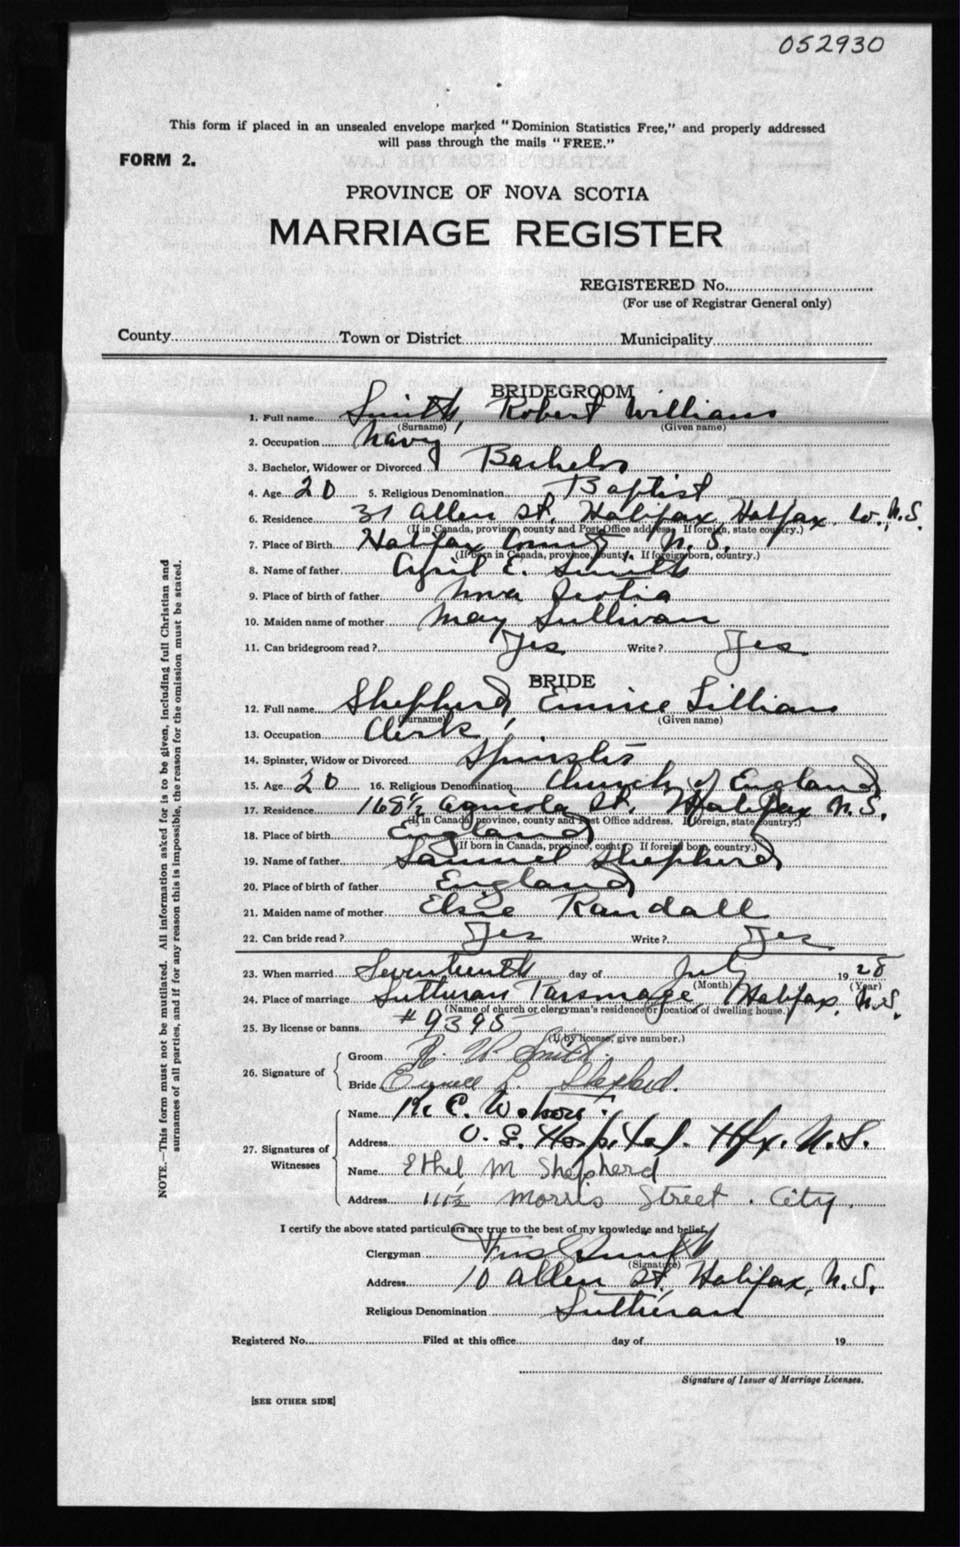 052930
This form if placed in an unsealed envelope marked "Dominion Statistics Free," and properly addressed
will pass through the mails "FREE."
FORM 2.
PROVINCE OF NOVA SCOTIA
MARRIAGE REGISTER
REGISTERED No.
(For use of Registrar General only)
County Town or District Municipality
BRIDEGROOM
1. Full name Smith, Robert William
(Surname) (Given name)
2. Occupation Navy
3. Bachelor, Widower or Divorced Bachelor
4. Age 20 5. Religious Denomination Baptist
6. Residence 31 Allen St, Halifax, Halifax Co., N.S.
(If in Canada, province, county and Post Office address. If foreign, state country.)
7. Place of Birth Halifax County, N.S.
(If born in Canada, province, county. If foreign born, country.)
8. Name of father E. Smith
9. Place of birth of father Nova Scotia
10. Maiden name of mother May Sullivan
11. Can bridegroom read? Yes Write? Yes
BRIDE
12. Full name Shepherd, Eunice Lillian
(Surname) (Given name)
13. Occupation Clerk
14. Spinster, Widow or Divorced Spinster
15. Age 20 16. Religious Denomination Church of England
17. Residence 168½ Agricola St, Halifax N.S.
(If in Canada, province, county and Post Office address. If foreign, state country.)
18. Place of birth England
(If born in Canada, province, county. If foreign born, country.)
19. Name of father Samuel Shepherd
20. Place of birth of father England
21. Maiden name of mother Elsie Randall
22. Can bride read? Yes Write? Yes
23. When married Seventeenth day of July 1928
(Month) (Year)
24. Place of marriage Lutheran Parsonage, Halifax, N.S.
(Name of church or clergyman's residence or location of dwelling house.)
25. By license or banns #9395
(If by license, give number.)
26. Signature of
Groom R. W. Smith.
Bride Eunice L. Shepherd.
27. Signatures of Witnesses
Name
Address Hospital. Hfx. N.S.
Name Ethel M Shepherd
Address 111½ Morris Street. City.
I certify the above stated particulars are true to the best of my knowledge and belief,
Clergyman
(Signature)
Address 10 Allen St, Halifax, N.S.
Religious Denomination Lutheran
Registered No. Filed at this office day of 19
Signature of Issuer of Marriage Licenses.
[SEE OTHER SIDE]
NOTE.—This form must not be mutilated. All information asked for is to be given, including full Christian and
surnames of all parties, and if for any reason this is impossible, the reason for the omission must be stated.